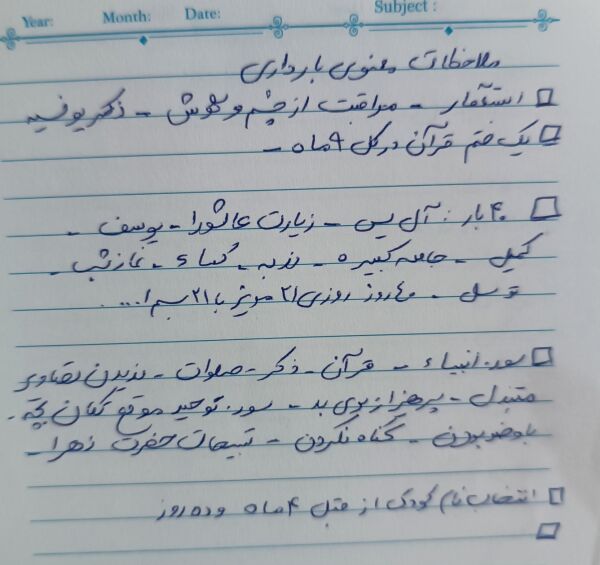 Year: Month: Date: Subject :
ملاحظات معنوی بارداری
استغفار - مراقبت از چشم و گوش - ذکر یونسیه
یک ختم قرآن در کل ۹ ماه -
۴۰ بار : آل یس - زیارت عاشورا - یوسف -
کمیل - جامعه کبیره - ندبه - کساء - نماز شب -
توسل - ۴۰ روز روزی ۲۱ مویز با ۲۱ بسم ا...
سوره انبیاء - قرآن - ذکر - صلوات - ندیدن تصاویر
مبتذل - پرهیز از بوی بد - سوره توحید موقع تکان بچه .
با وضو بودن - گناه نکردن - تسبیحات حضرت زهرا -
انتخاب نام کودک از قبل ۴ ماه و ده روز